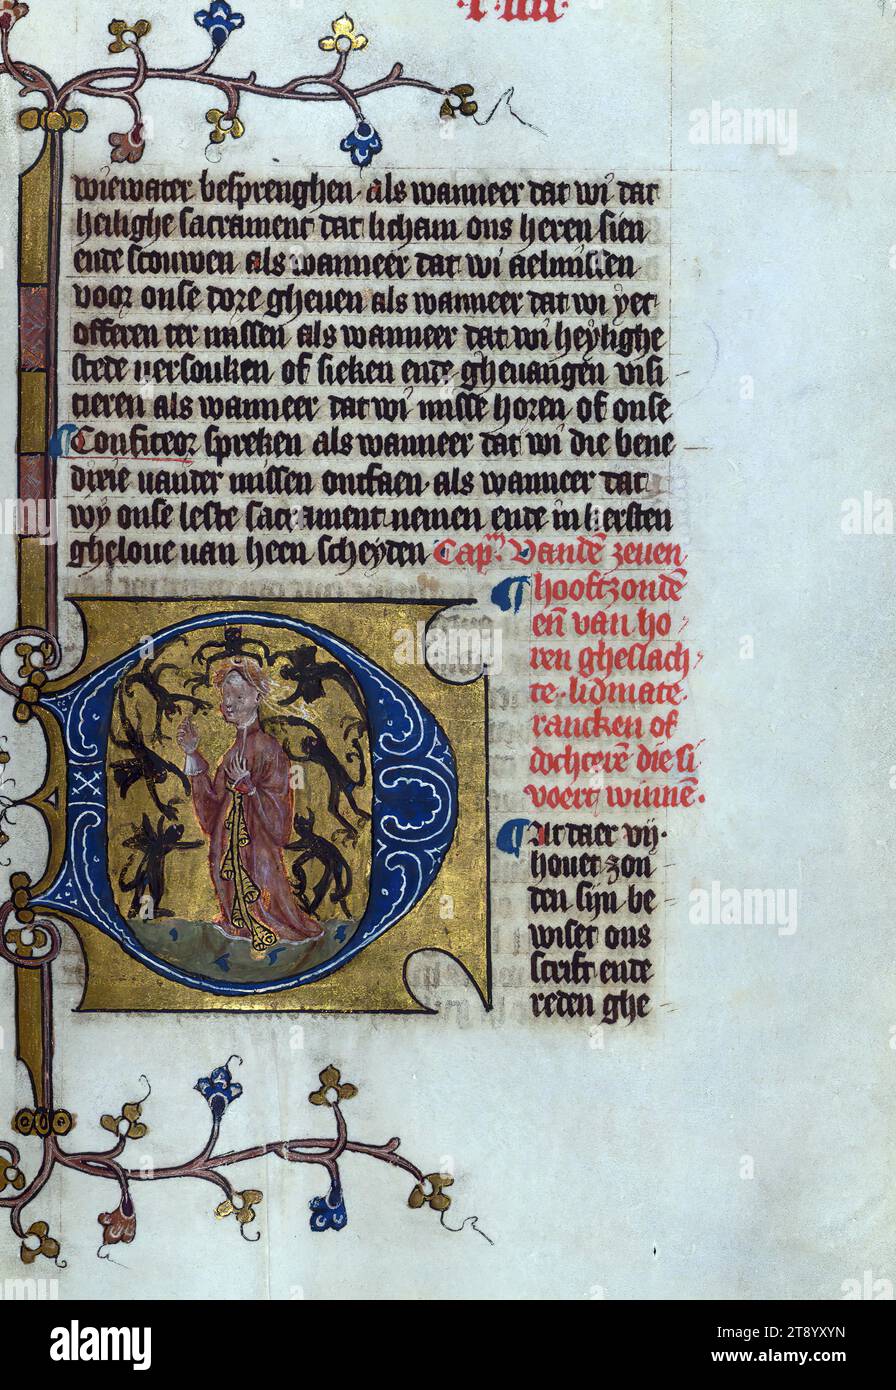 ·l·iiii·
wiewater besprenghen· als wanneer dat wi dat
heilighe sacrament dat licham ons heren sien
ende scouwen als wanneer dat wi aelmissen
voor onse dore gheven als wanneer dat wi yet
offeren ter missen als wanneer dat wi heylighe
stede versouken of sieken ende ghevangen visi
tieren als wanneer dat wi misse horen of onse
Confiteor spreken als wanneer dat wi die bene
dixie vander missen ontfaen· als wanneer dat
wy onse leste sacrament nemen ende in kersten
gheloue van heen scheyden Capm. Vanden zeuen
hooftzonden
en van ho
ren gheslach
te· lidmate
rancken of
dochteren die si
voert winnen·
At daer vij·
hovet zon
den sijn be
wiset ons
scrift ende
reden ghe
alamy
Image ID: 2T8YXYN
www.alamy.com